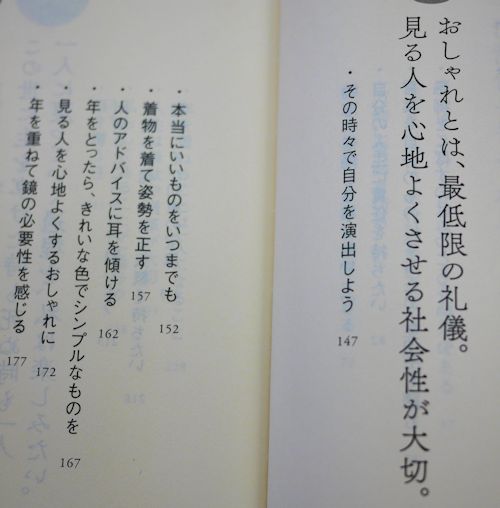 おしゃれとは、最低限の礼儀。
見る人を心地よくさせる社会性が大切。
・その時々で自分を演出しよう 147
・本当にいいものをいつまでも 152
・着物を着て姿勢を正す 157
・人のアドバイスに耳を傾ける 162
・年をとったら、きれいな色でシンプルなものを 167
・見る人を心地よくするおしゃれに 172
・年を重ねて鏡の必要性を感じる 177